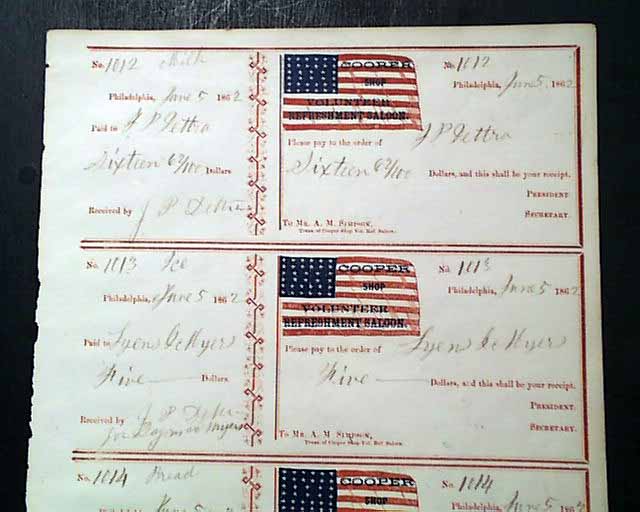 No. 1012 Milk
Philadelphia, June 5 1862
Paid to J P Dettra
Sixteen 62/100 Dollars
Received by J P Dettra
COOPER
SHOP
VOLUNTEER
REFRESHMENT SALOON.
No. 1012
Philadelphia, June 5, 1862
Please pay to the order of J P Dettra
Sixteen 62/100 Dollars, and this shall be your receipt.
PRESIDENT.
SECRETARY.
To Mr. A. M. Simpson,
Treas. of Cooper Shop Vol. Ref. Saloon.
No. 1013 Ice
Philadelphia, June 5 1862
Paid to Lyens & Myers
Five Dollars.
Received by J P
for Myers
COOPER
SHOP
VOLUNTEER
REFRESHMENT SALOON.
No. 1013
Philadelphia, June 5 1862
Please pay to the order of Lyens & Myers
Five Dollars, and this shall be your receipt.
PRESIDENT.
SECRETARY.
To Mr. A. M. Simpson,
Treas. of Cooper Shop Vol. Ref. Saloon.
No. 1014 Bread
June 5
COOPER
SHOP
No. 1014
Philadelphia, June 5 1862